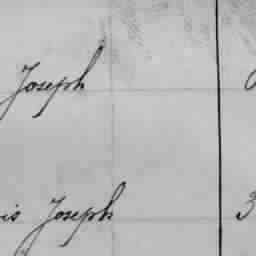 Joseph
is Joseph 3